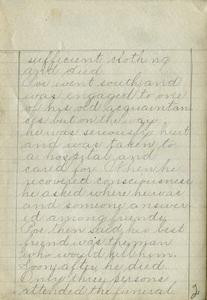 sufficient clothing
and died.
Poe went south and
was engaged to one
of his old acquaintan-
ces but on the way
he was seriously hurt
and was taken to
a hospital and
cared for. When he
recovered consciousness
he asked where he was
and someone answer-
ed among friends
Poe then said his best
friend was the man
who would kill him.
Soon after he died
Only three persons
attended the funeral
2